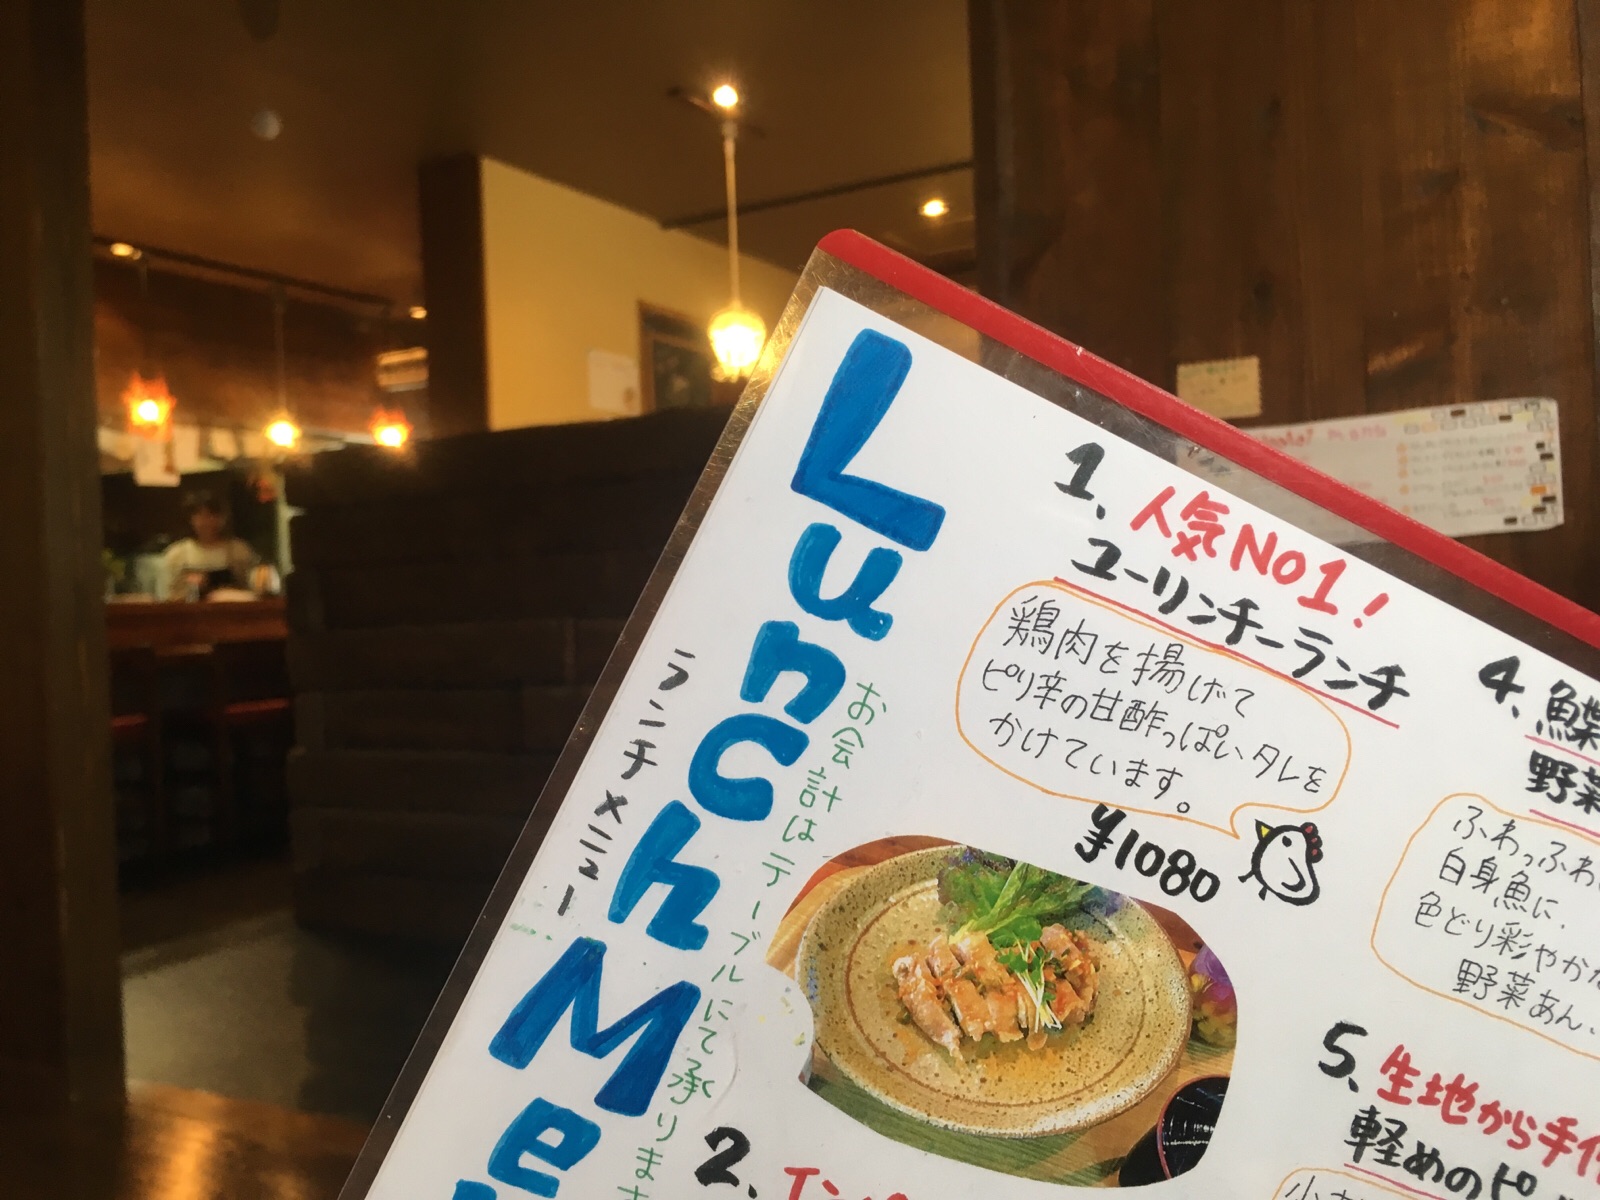 Lunch Me
ランチメニュー
お会計はテーブルにて承ります
1、人気No1！
ユーリンチーランチ
鶏肉を揚げて
ピリ辛の甘酢っぱいタレを
かけています。
¥1080
2、
4、鰈
野菜
ふわっふわ
白身魚に、
色どり彩やかな
野菜あん
5、生地から手作
軽めのピ